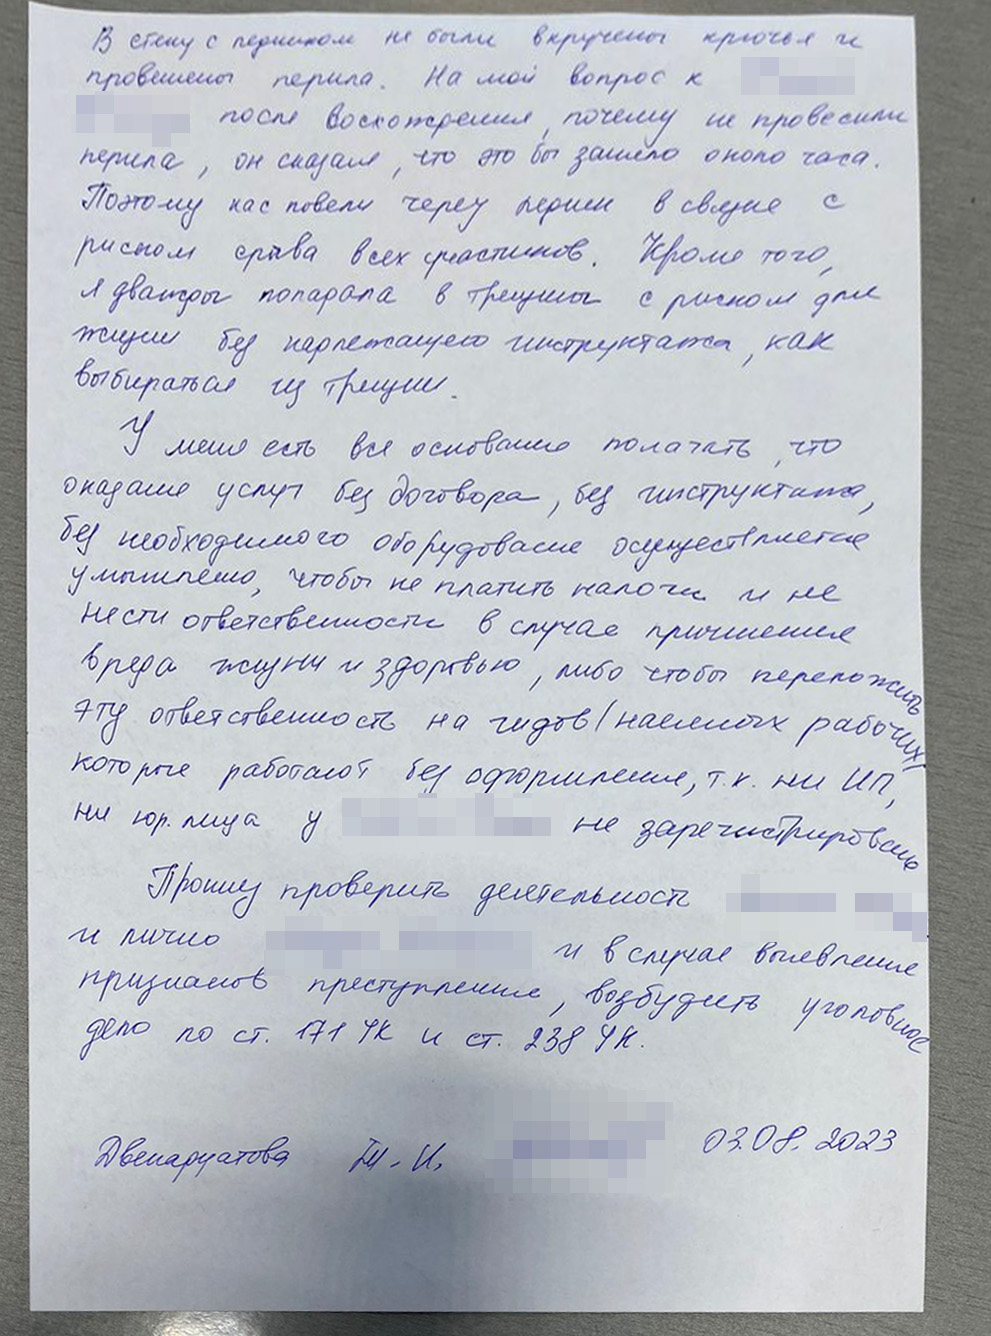 В стену с ледником не были вкручены крючья и
провешены перила. На мой вопрос к
после восхождения, почему не провесили
перила, он сказал, что это бы заняло около часа.
Поэтому нас повели через ледник в связке с
риском срыва всех участников. Кроме того,
я дважды попадала в трещины с риском для
жизни без надлежащего инструктажа, как
выбираться из трещин.
У меня есть все основания полагать, что
оказание услуг без договора, без инструктажа,
без необходимого оборудования осуществляется
умышлено, чтобы не платить налоги и не
нести ответственности в случае причинения
вреда жизни и здоровью, либо чтобы переложить
эту ответственность на гидов/наемных рабочих,
которые работают без оформления, т.к. ни ИП,
ни юр. лица у не зарегистрировано
Прошу проверить деятельность
и лично и в случае выявления
признаков преступления, возбудить уголовное
дело по ст. 171 УК и ст. 238 УК.
Двенадцатова Т. И. 03.08.2023